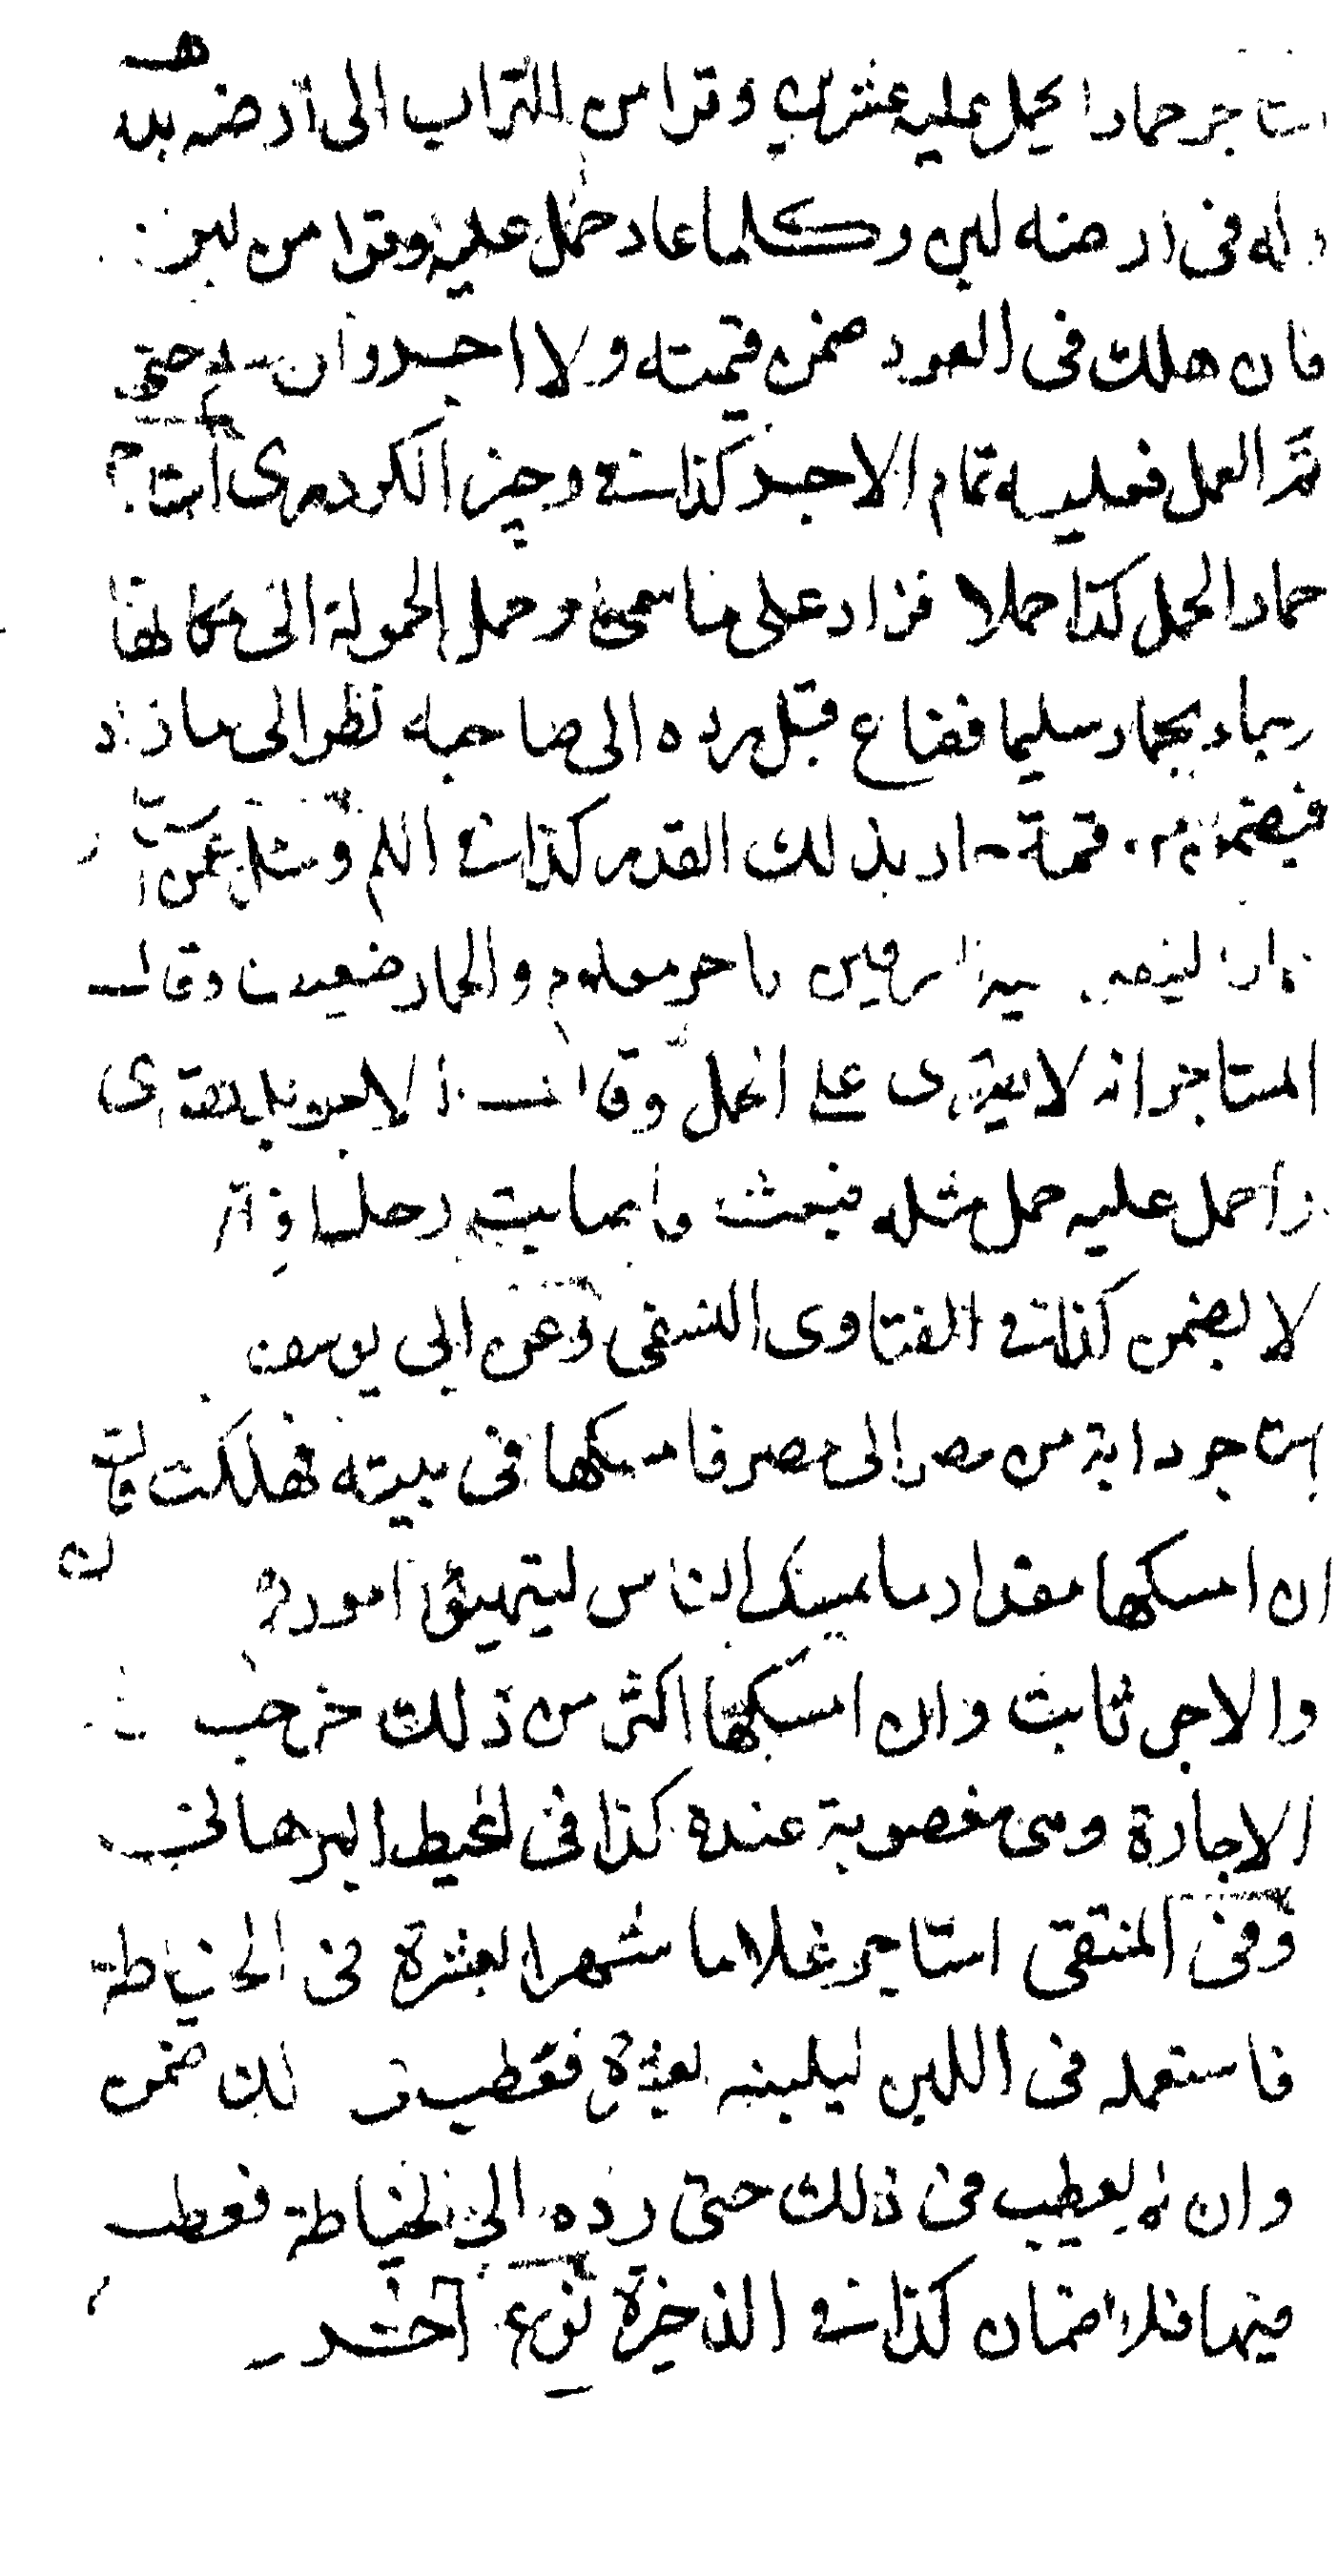 استاجر حمارا ليحمل عليه عشرين وقرا من التراب الى ارضه بدرهم
وله في ارضه لبن وكلما عاد حمل عليه وقرا من لبن
فان هلك في العود ضمن قيمته ولا اجر وان سلم حتى
تم العمل فعليه تمام الاجر كذا في وجيز الكردري استاجر
حمارا لحمل كذا حملا فزاد على ما سمى وحمل الحمولة الى مكانها
وجاء بحمار سليما فضاع قبل رده الى صاحبه نظر الى ما زاد
فيضمن من قيمة بذلك القدر كذا في وسئل عمن
المرقين باجر معلوم والحمار ضعيف وقال
المستاجر انه لا يقوى على الحمل وقال الاجر بل يقوى
احمل عليه حمل مثله فبعث
لا يضمن كذا في الفتاوى النسفى وعن ابي يوسف
استاجر دابة من مصر الى مصر فامسكها في بيته فهلكت قالت
ان امسكها مقدار ما يمسك الناس ليتهيؤا امورهم
والاجر ثابت وان امسكها اكثر من ذلك خرجت
الاجارة وهى مغصوبة عنده كذا في المحيط البرهاني
وفي المنتقى استاجر غلاما شهرا بعشرة في الخياطة
فاستعمله في اللبن ليلبنه بعشرة فعطب في ذلك ضمن
وان لم يعطب في ذلك حتى رده الى الخياطة فعطب
فيها فلا ضمان كذا في الذخيرة نوع آخر